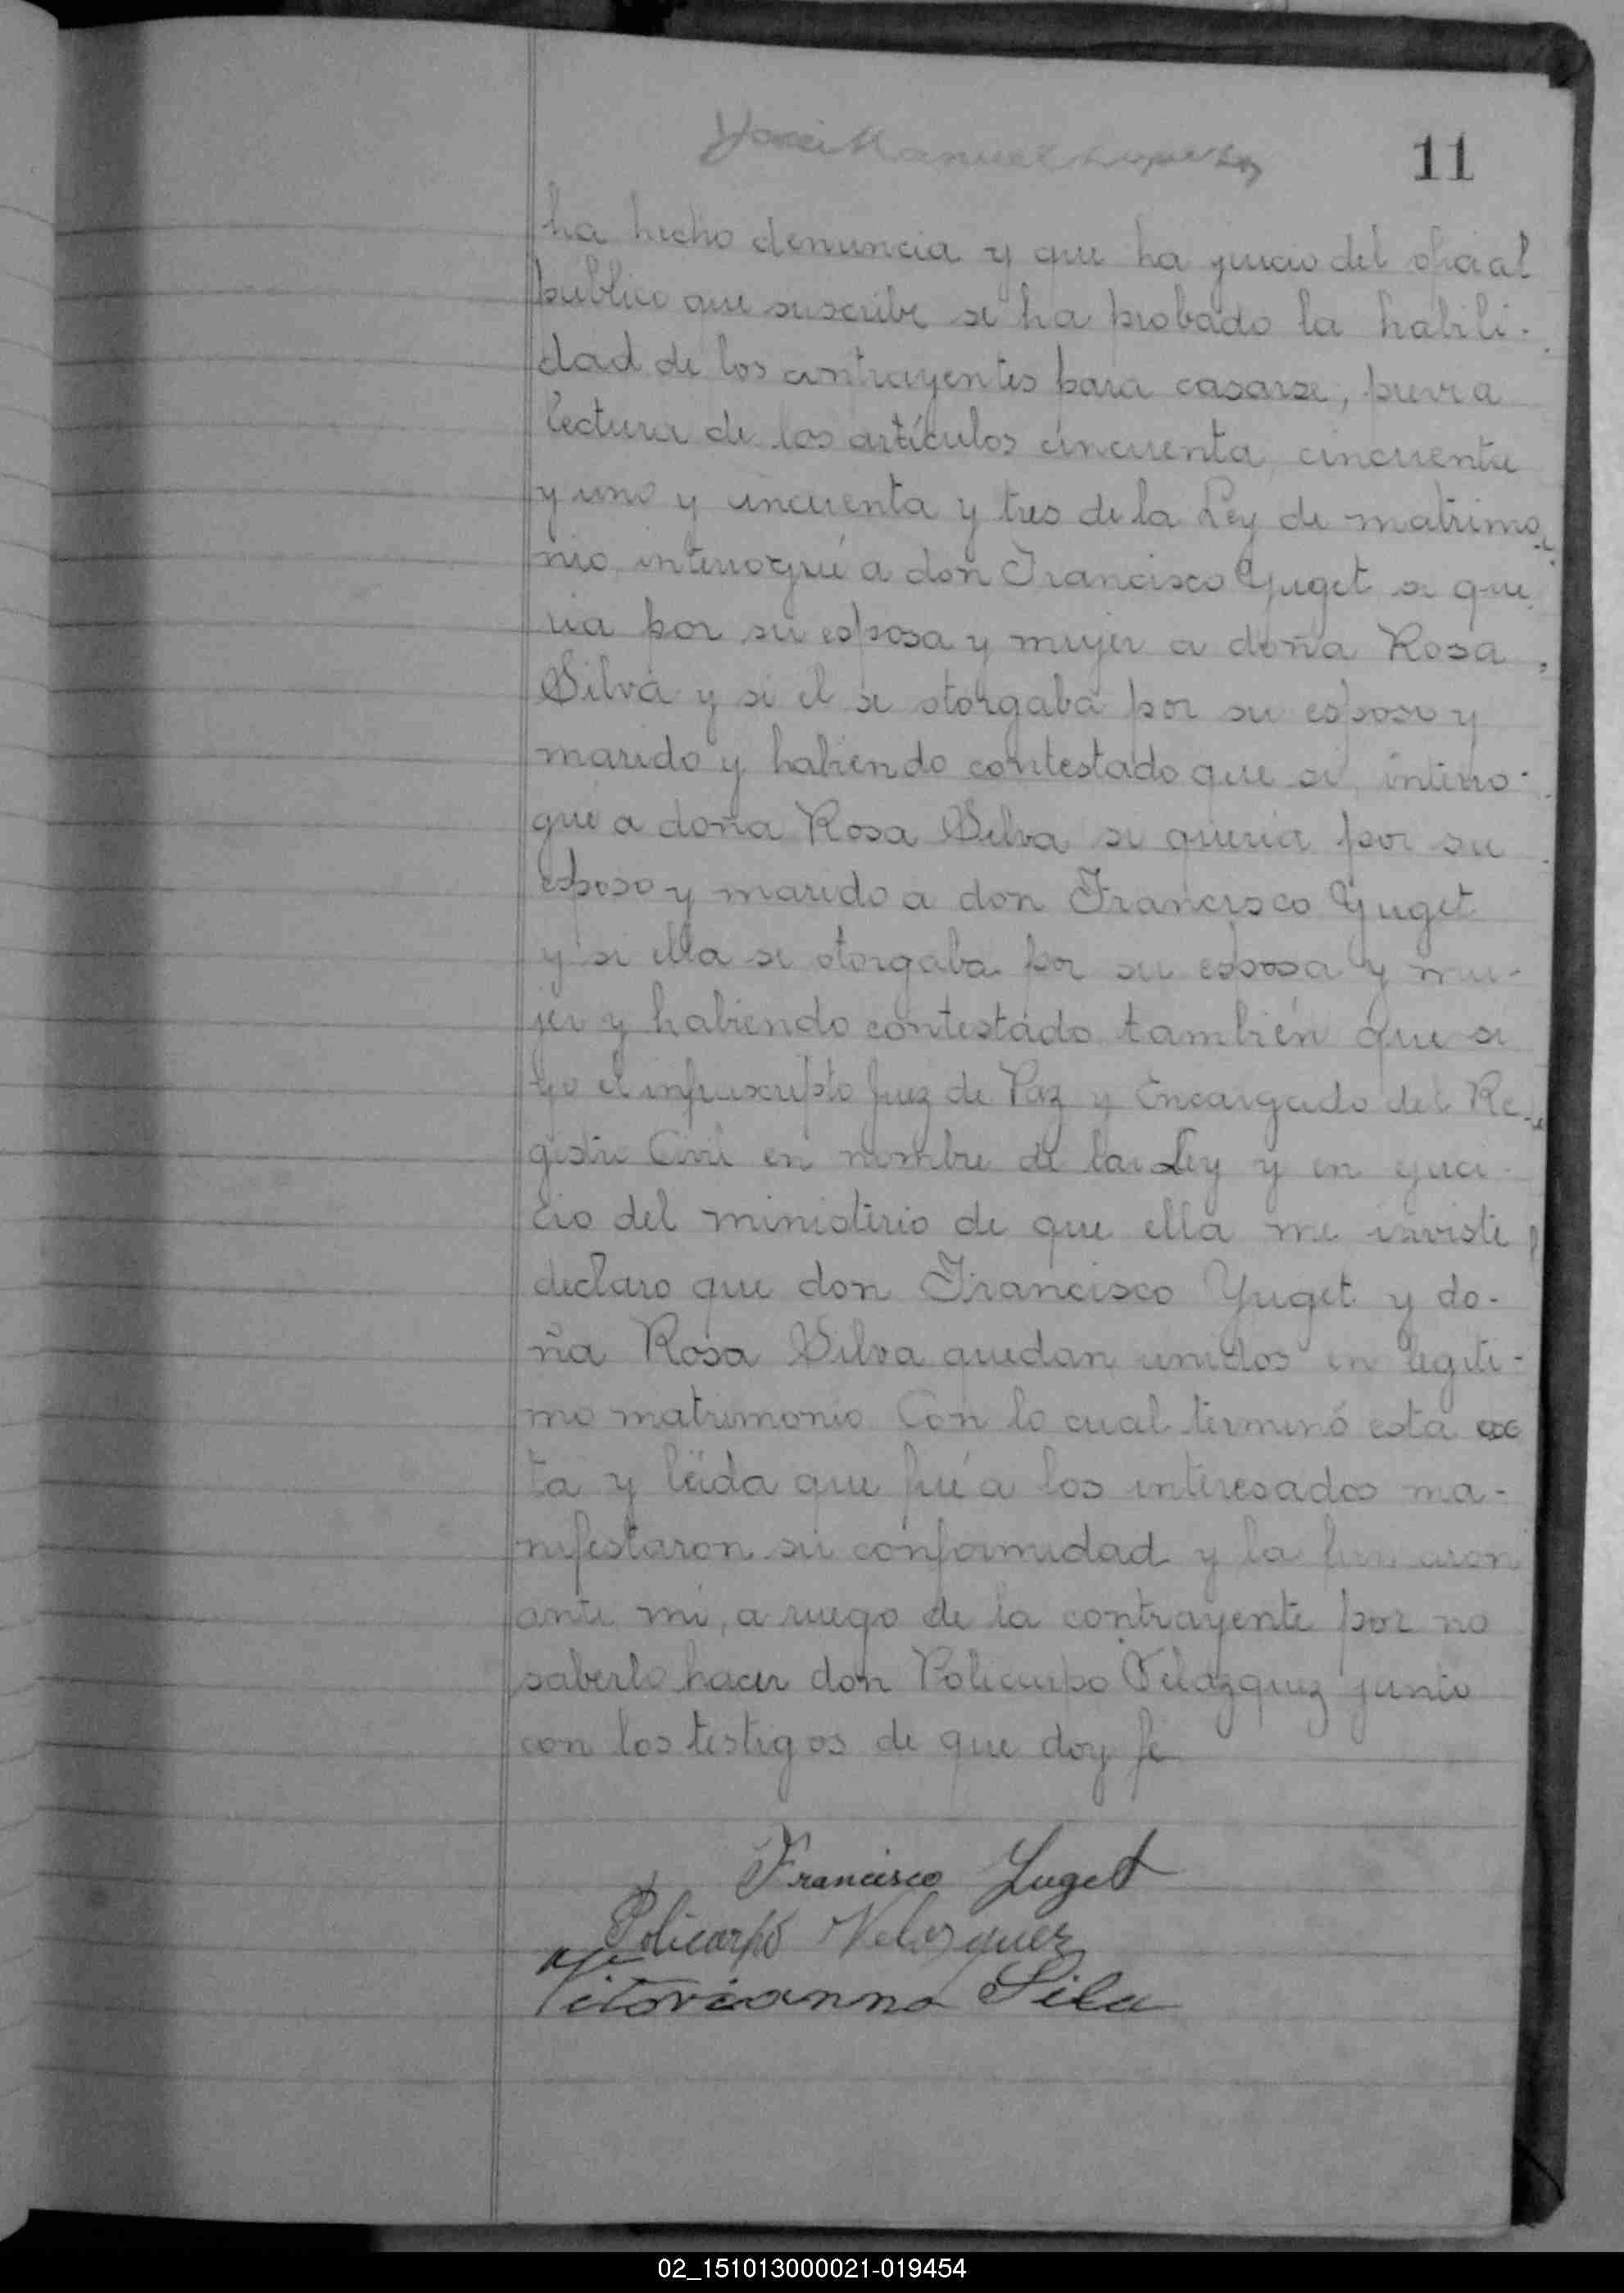 José Manuel
11
ha hecho denuncia y que ha juicio del oficial
público que suscribe se ha probado la habili-
dad de los contrayentes para casarse, previa
lectura de los artículos cincuenta, cincuenta
y uno y cincuenta y tres de la Ley de matrimo-
nio, interrogué a don Francisco Yuget si que-
ria por su esposa y mujer a doña Rosa
Silva y si el se otorgaba por su esposo y
marido y habiendo contestado que si, interro-
gué a doña Rosa Silva si queria por su
esposo y marido a don Francisco Yuget
y si ella se otorgaba por su esposa y mu-
jer y habiendo contestado también que si
Yo el infrascripto Juez de Paz y Encargado del Re-
gistro Civil en nombre de la Ley y en ejerci-
cio del ministerio de que ella me inviste
declaro que don Francisco Yuget y do-
ña Rosa Silva quedan unidos en legiti-
mo matrimonio. Con lo cual terminó esta ac
ta y leida que fué a los interesados ma-
nifestaron su conformidad y la firmaron
ante mi, a ruego de la contrayente por no
saberlo hacer don Policarpo Velazquez junto
con los testigos de que doy fe
Francisco Yuget
Policarpo Velozquez
Vitorianno Sila
02_151013000021-019454